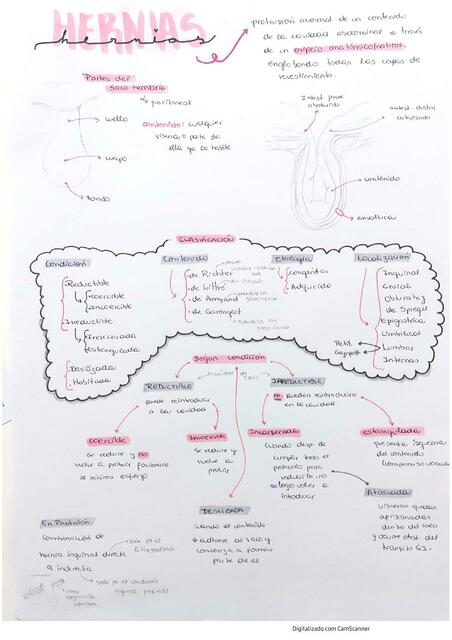 HERNIAS
hernias
protrusión anormal de un contenido
de la cavidad abdominal a través
de un orificio anatómico/natural
englobando todas las capas de
revestimiento.
Partes del
saco herniario
peritoneal
cuello
contenido: cualquier
víscera o parte de
ella que lo habite
cuerpo
Fondo
Intest prox
intest distal
colapsado
contenido
envoltura
CLASIFICACIÓN
Condición
Reductible
Coercible
Incoercible
Irreductible
Incarcerada
Estrangulada
Deslizada
Habitada
Contenido
de Richter
de Littré
de Amyand
de Garengeot
Etiología
Congénitas
Adquirido
Localización
Inguinal
Crural
Obturatriz
de Spiegel
Epigástrica
Umbilical
Petit
Lumbar
Internas
Según condición
REDUCTIBLE
puede reintroducir
a la cavidad
IRREDUCTIBLE
no pueden reintroducirse
en la cavidad
COERCIBLE
se reduce y no
vuelve a protruir facilmente
al minimo esfuerzo
Incoercible
Se reduce y
vuelve a
protruir
Incarcerada
Cuando desp. de
cumplir todo el
protocolo para
reducirla, no
se logra volver a
introducir
estrangulada
presenta isquemia
del contenido
Compromiso vascular
Atascada
vísceras quedan
aprisionadas
dentro del saco
y ocurre obst. del
tránsito GI.
DESLIZADA
Cuando el contenido
se adhiere al saco y
comienza a formar
parte de él
En Pantalón:
Combinación de
hernia inguinal directa
e indirecta.
sale por el
Δ Hesselbach
sale por el conducto
inguinal profundo
Digitalizado com CamScanner